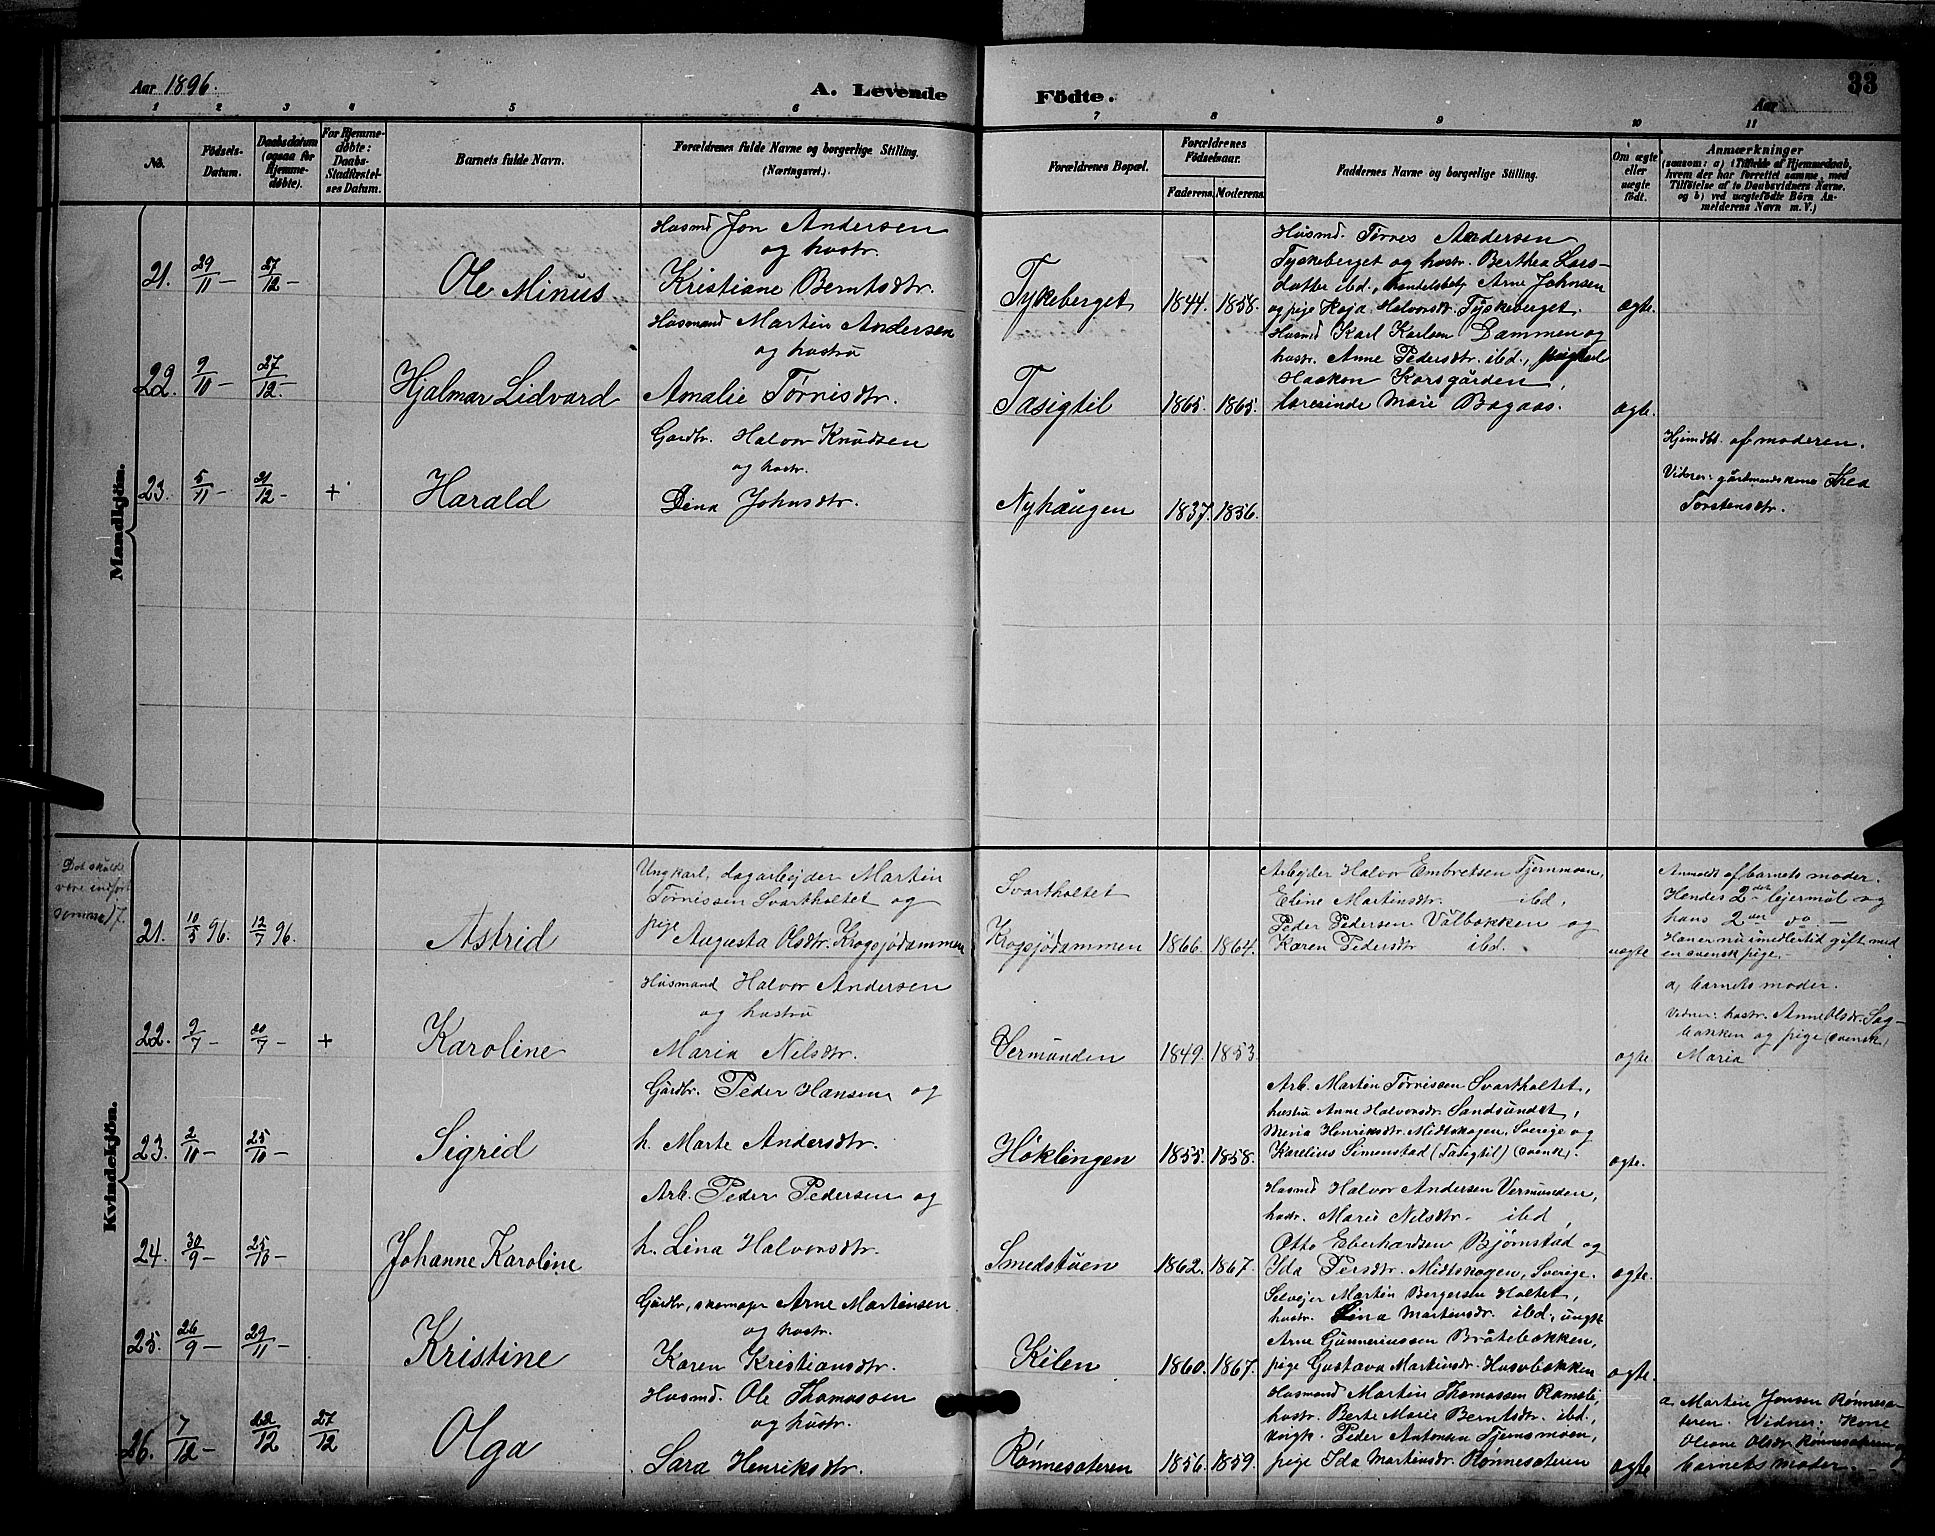 Aar 1896.
A. Levende Födte.
33
Aar
1 2 3 4 5 6 7 8 9 10 11
No.
Födsels-Datum.
Daabsdatum (ogsaa for Hjemmedöbte).
For Hjemmedöbte: Daabs-Stadfæstelses Datum.
Barnets fulde Navn.
Forældrenes fulde Navne og borgerlige Stilling.
(Næringsvei.)
Forældrenes Bopæl.
Forældrenes Födselsaar.
Faderens. Moderens.
Faddernes Navne og borgerlige Stilling.
Om ægte eller uægte födt.
Anmærkninger
(saasom: a) i Tilfælde af Hjemmedaab,
hvem der har forrettet samme, med
Tilföielse af to Daabsvidners Navne,
og b) ved uægtefödte Börn An-
melderens Navn m. V.)
Mandkjön.
21. 29/11 – 27/12 – Ole Minus
Husmd Jon Andersen
og hustr.
Kristiane Berntsdtr.
Tyskeberget 1844. 1858.
Husmd. Tørnes Andersen
Tyskeberget og hustr. Berthea Lars-
datter ibd., handelsbetj Arne Johnsen
og pige Kaja Halvorsdr. Tyskeberget.
ægte.
22. 9/10 – 27/12 – Hjalmar Lidvard
Husmand Martin Andersen
og hustru
Amalie Tørnisdtr.
Tasigtil 1865. 1865.
Husmd Karl Karlsen Dammen og
hustr. Anne Pedersdtr. ibd.,
Haakon Korsgården,
lærerinde Mari Bogaas.
ægte.
23. 5/11 – 21/12 – + Harald
Gardbr. Halvor Knudsen
og hustr.
Dina Johnsdtr.
Nyhaugen 1837. 1856.
Hjemdbt. af moderen.
Vidner: gårdmandskone Thea
Torstensdtr.
Kvindekjön.
Det skulde
være indført
somme 17.
21. 10/3 96. 12/7 96. Astrid
Ungkarl, dagarbejder Martin
Tørnissen Svartholtet og
pige Augusta Olsdtr. Krogsjødammen
Svartholtet
Krogsjødammen 1866. 1864.
Arbejder Halvor Embretsen Tjernmoen,
Eline Martinsdtr. ibd,
Peder Pedersen Vålbakken og
Karen Pedersdtr ibd.
uægte
Anmeldt af barnets moder.
Hendes 2det lejermål og
hans 2den do –
Han er nu imidlertid gift med
en svensk pige.
22. 9/7 – 20/7 – + Karoline
Husmand Halvor Andersen
og hustru
Maria Nilsdtr.
Vermunden 1849. 1853.
ægte.
a, barnets moder.
Vidner: hustr. Anne Olsdr. Sag-
bakken og pige (svensk)
Maria
23. 2/10 – 25/10 – Sigrid
Gårdbr. Peder Hansen og
h. Marte Andersdtr.
Høklingen 1855. 1858.
Arb. Martin Tørnissen Svartholtet,
hustru Anne Halvorsdr. Sandsundet,
Maria Henriksdtr. Midtskogen, Sverige og
Karelius Simenstad (Tasigtil) (svensk).
ægte.
24. 30/9 – 25/10 – Johanne Karoline
Arb. Peder Pedersen og
h. Lina Halvorsdtr.
Smedstuen 1862. 1867.
Husmd Halvor Andersen Vermunden,
hustr. Mari Nilsdtr. ibd,
Otto Eberhardsen Bjørnstad og
Ida Persdtr. Midtskogen, Sverige.
ægte.
25. 26/9 – 29/11 – Kristine
Gårdbr, skomager Arne Martinsen
og hustr.
Karen Kristiansdtr.
Kilen 1860. 1867.
Selvejer Martin Bergersen Holtet,
hustr. Lina Martinsdr. ibd, ungk
Arne Gunneriussen Bråtebakken,
pige Gustava Martinsdr. Husubakken
ægte.
26. 7/12 – 22/12 27/12 Olga
Husmd. Ole Thomassen
og hustr.
Sara Henriksdtr.
Rønnesæteren 1856. 1859.
Husmand Martin Thomassen Ramsli,
hustr. Berte Marie Berntsdtr. ibd,
ungk. Peder Antonsen Tjernsmoen,
pige Ida Martinsdr. Rønnesæteren
ægte
a. Martin Jonsen Rønnesæ-
teren. Vidner: Kone
Oleane Olsdtr Rønnesæteren og
barnets moder. –